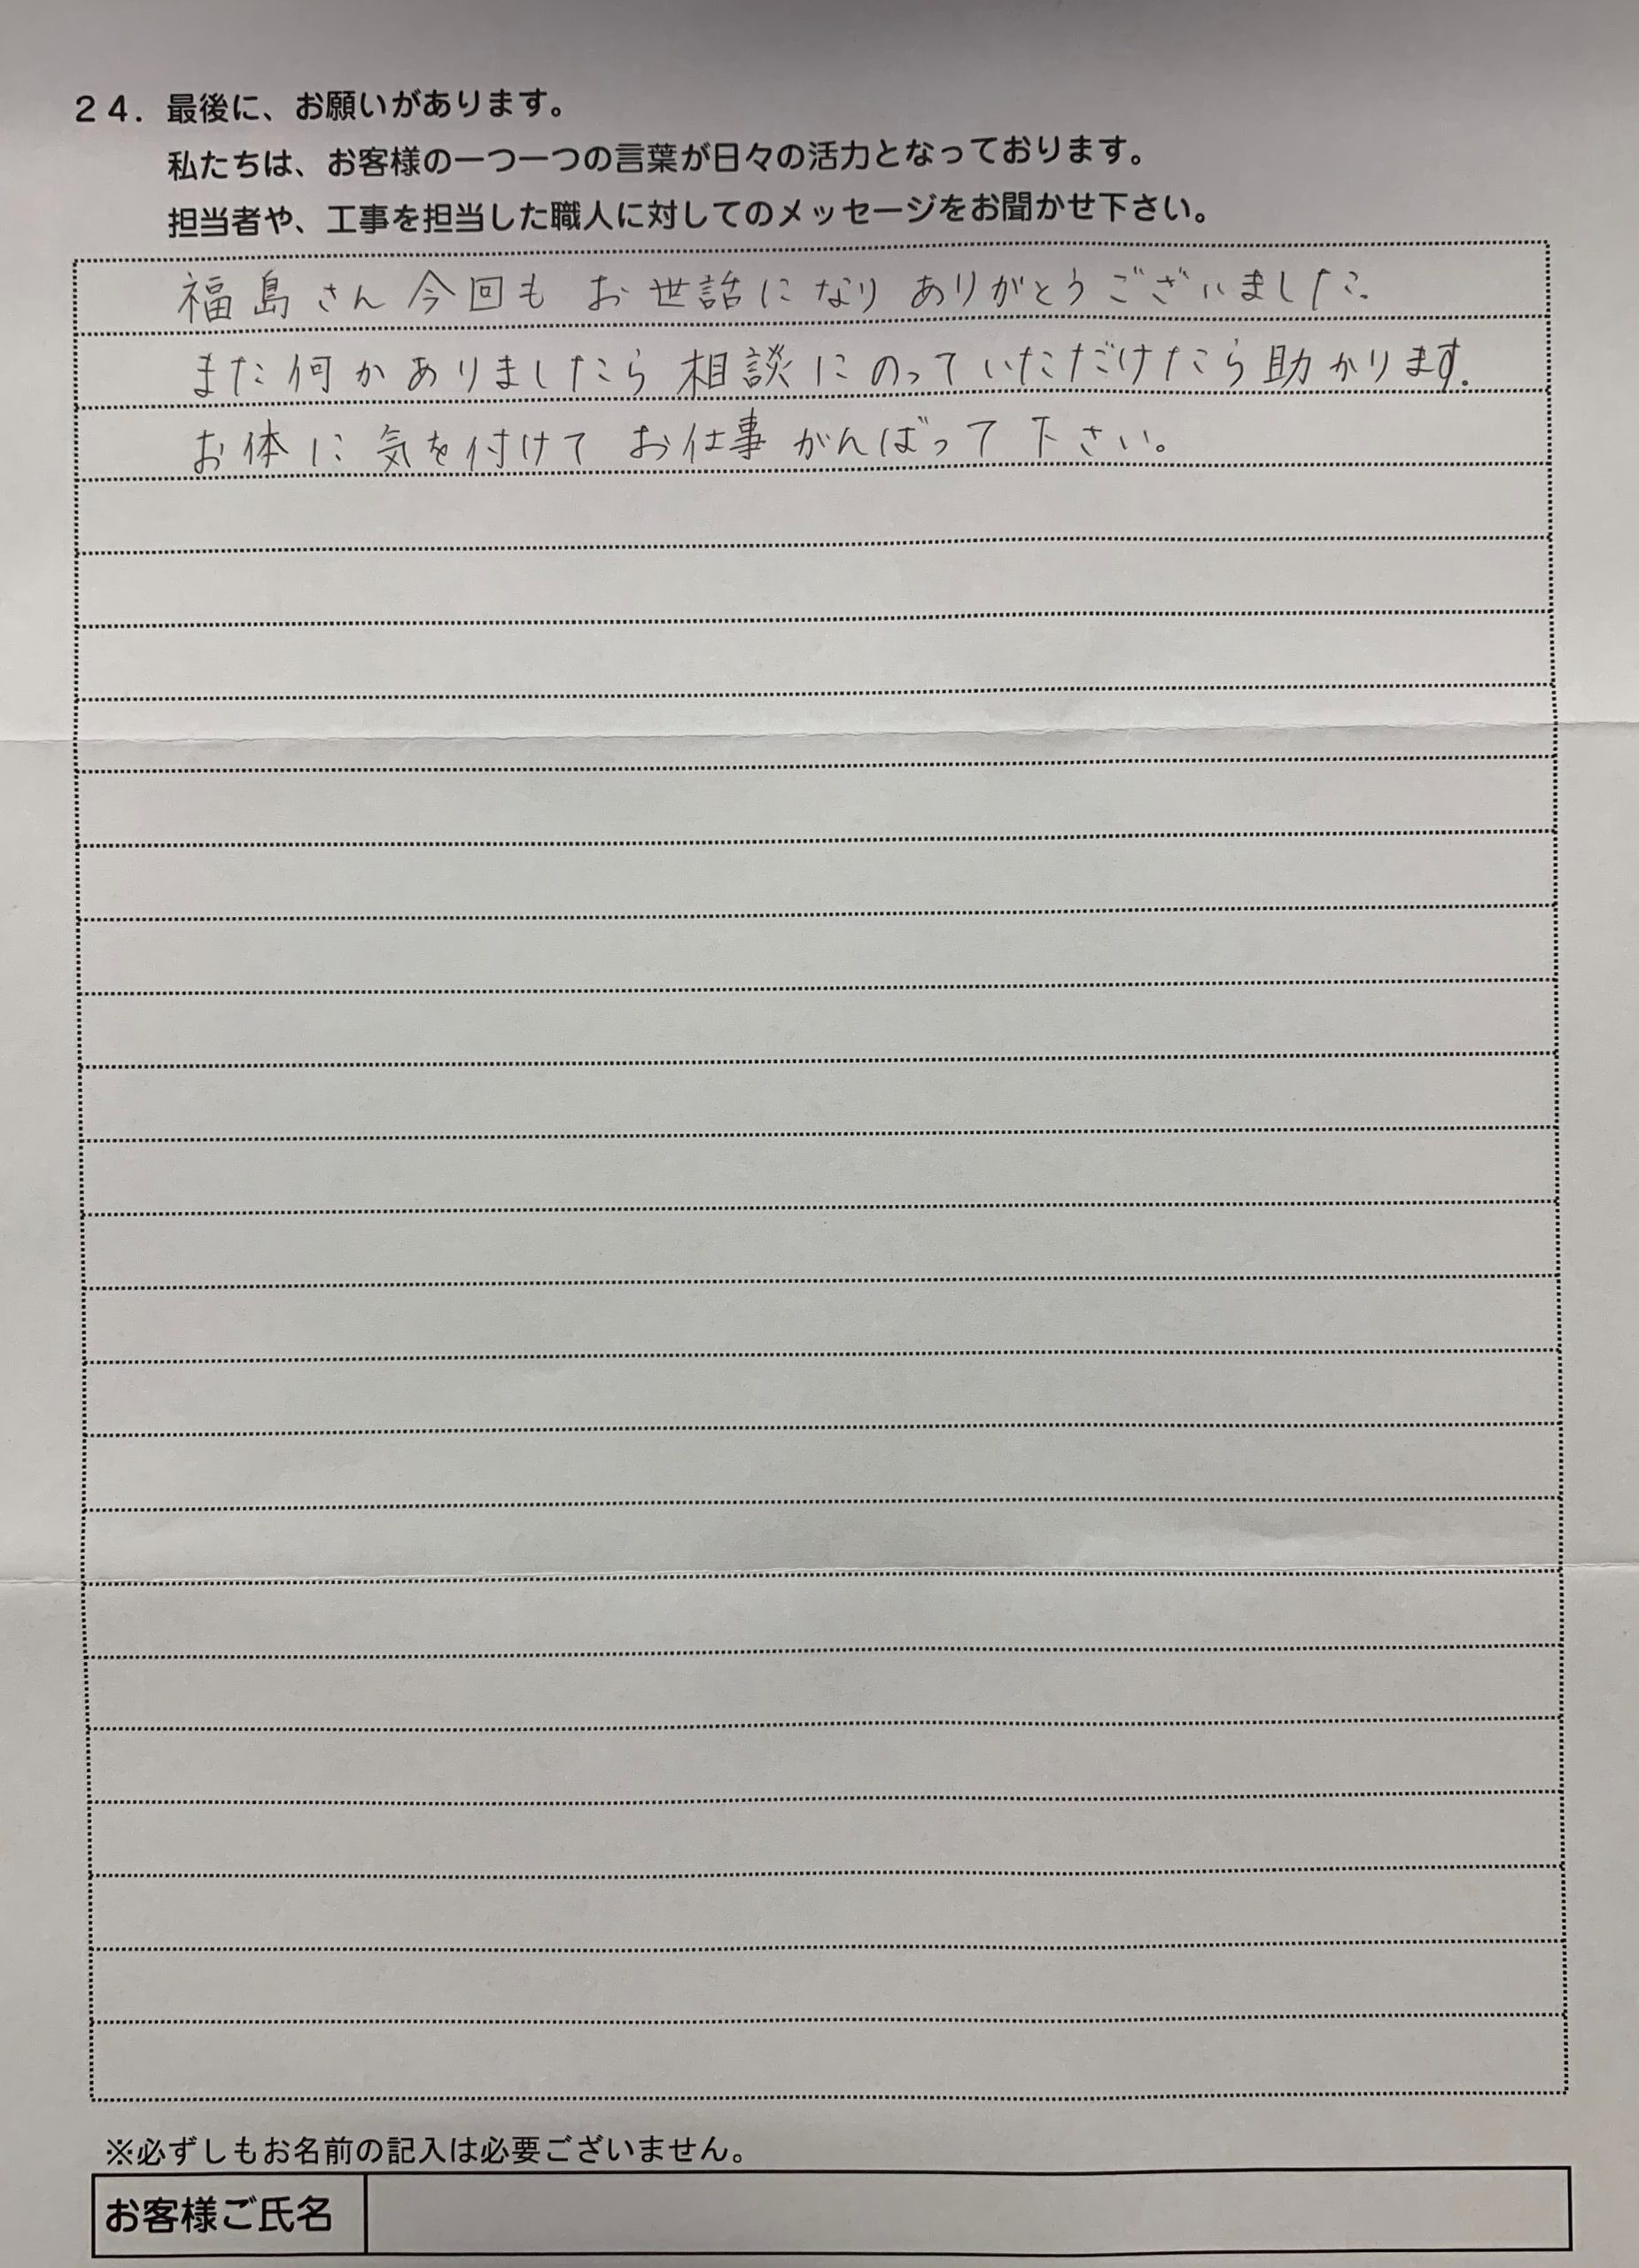 24. 最後に、お願いがあります。
私たちは、お客様の一つ一つの言葉が日々の活力となっております。
担当者や、工事を担当した職人に対してのメッセージをお聞かせ下さい。
福島さん今回も お世話になり ありがとうございました。
また何かありましたら相談にのっていただけたら助かります。
お体に気を付けて お仕事がんばって下さい。
※必ずしもお名前の記入は必要ございません。
お客様ご氏名